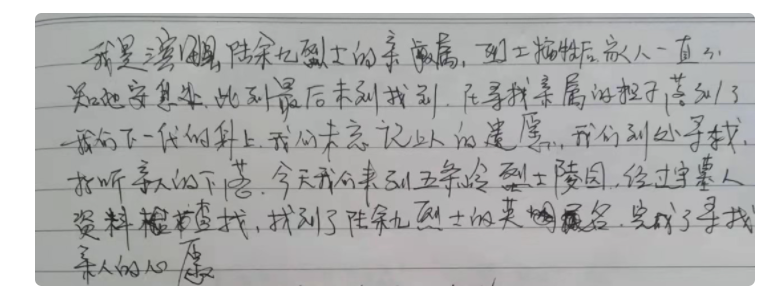 我是滨海县陆余九烈士的亲属,烈士牺牲后家人一直不
知他安息处,此到最后未到找到.在寻找亲属的担子,落到了
我们下一代的身上.我们未忘记上人的遗愿,我们到处寻找,
打听亲人的下落.今天我们来到五条岭烈士陵园,经过守墓人
资料查找,找到了陆余九烈士的英名,完成了寻找
亲人的心愿